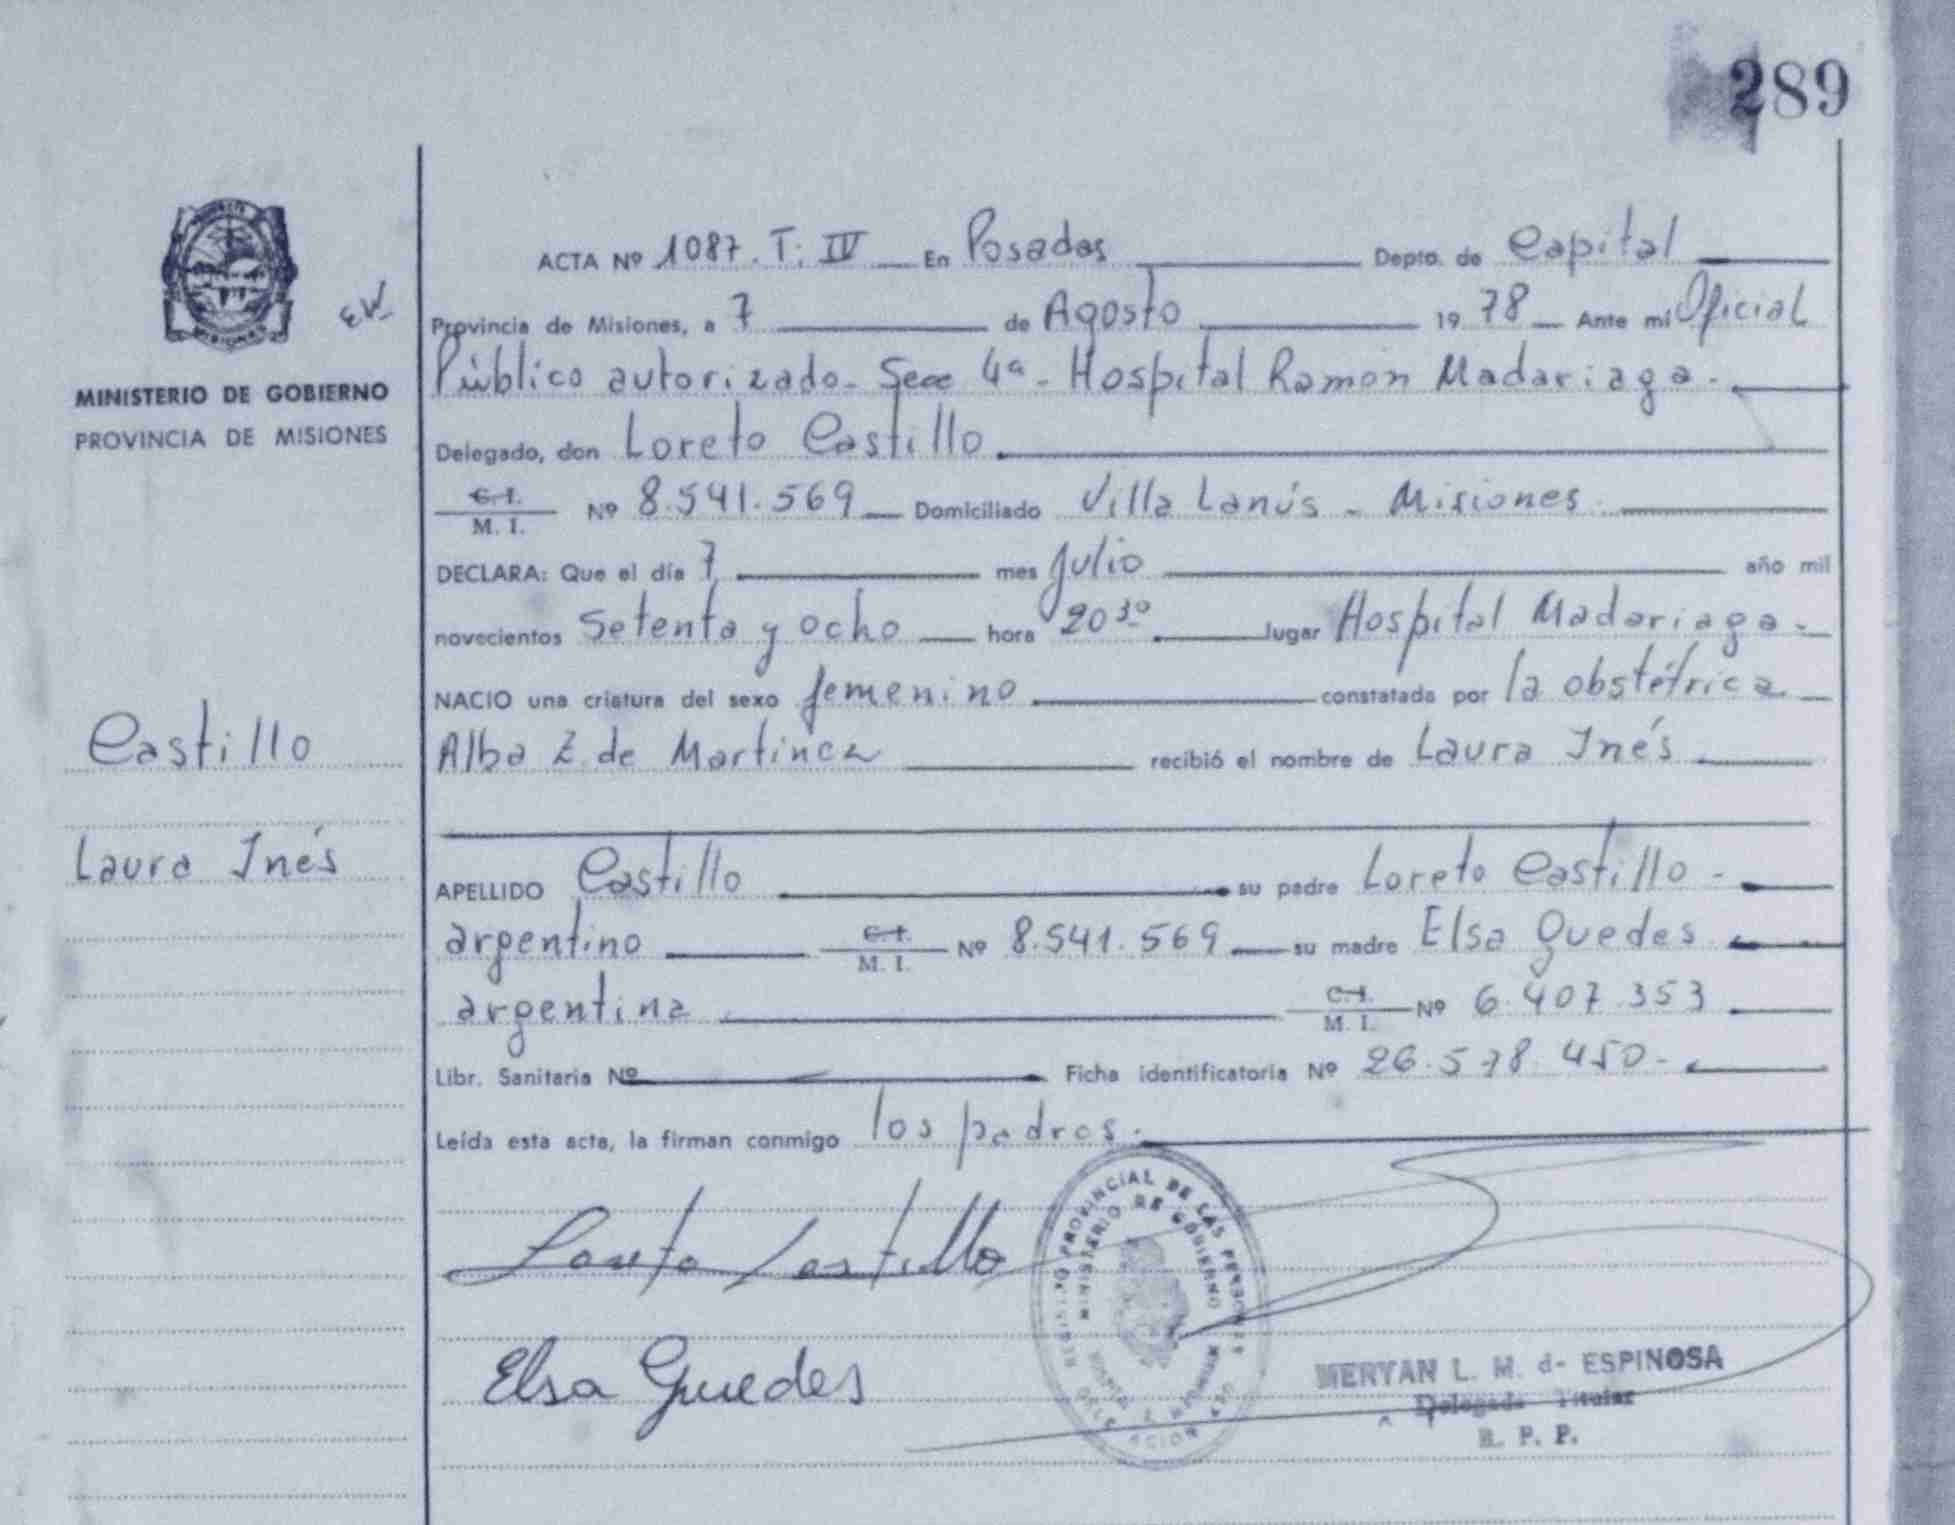 289
ACTA Nº 1087. T. IV En Posadas Depto. de Capital
EW
Provincia de Misiones, a 7 de Agosto 19 78 Ante mí Oficial
Público autorizado - Secc 4ª - Hospital Ramón Madariaga.
MINISTERIO DE GOBIERNO
PROVINCIA DE MISIONES
Delegado, don Loreto Castillo
C. I.
M. I. Nº 8.541.569 Domiciliado Villa Lanús - Misiones.
DECLARA: Que el día 7 mes Julio año mil
novecientos Setenta y ocho hora 20 30 lugar Hospital Madariaga.
NACIO una criatura del sexo femenino constatada por la obstétrica
Castillo
Alba Z. de Martinez recibió el nombre de Laura Inés
Laura Inés
APELLIDO Castillo su padre Loreto Castillo -
argentino C. I. M. I. Nº 8.541.569 su madre Elsa Guedes
argentina C. I. M. I. Nº 6.407.353
Libr. Sanitaria Nº Ficha identificatoria Nº 26.578.450-
Leída esta acta, la firman conmigo los padres.
Loreto Castillo
Elsa Guedes
PROVINCIAL DE LAS PERSONAS
MINISTERIO DE GOBIERNO
MERYAN L. M. d- ESPINOSA
Delegada Titular
R. P. P.